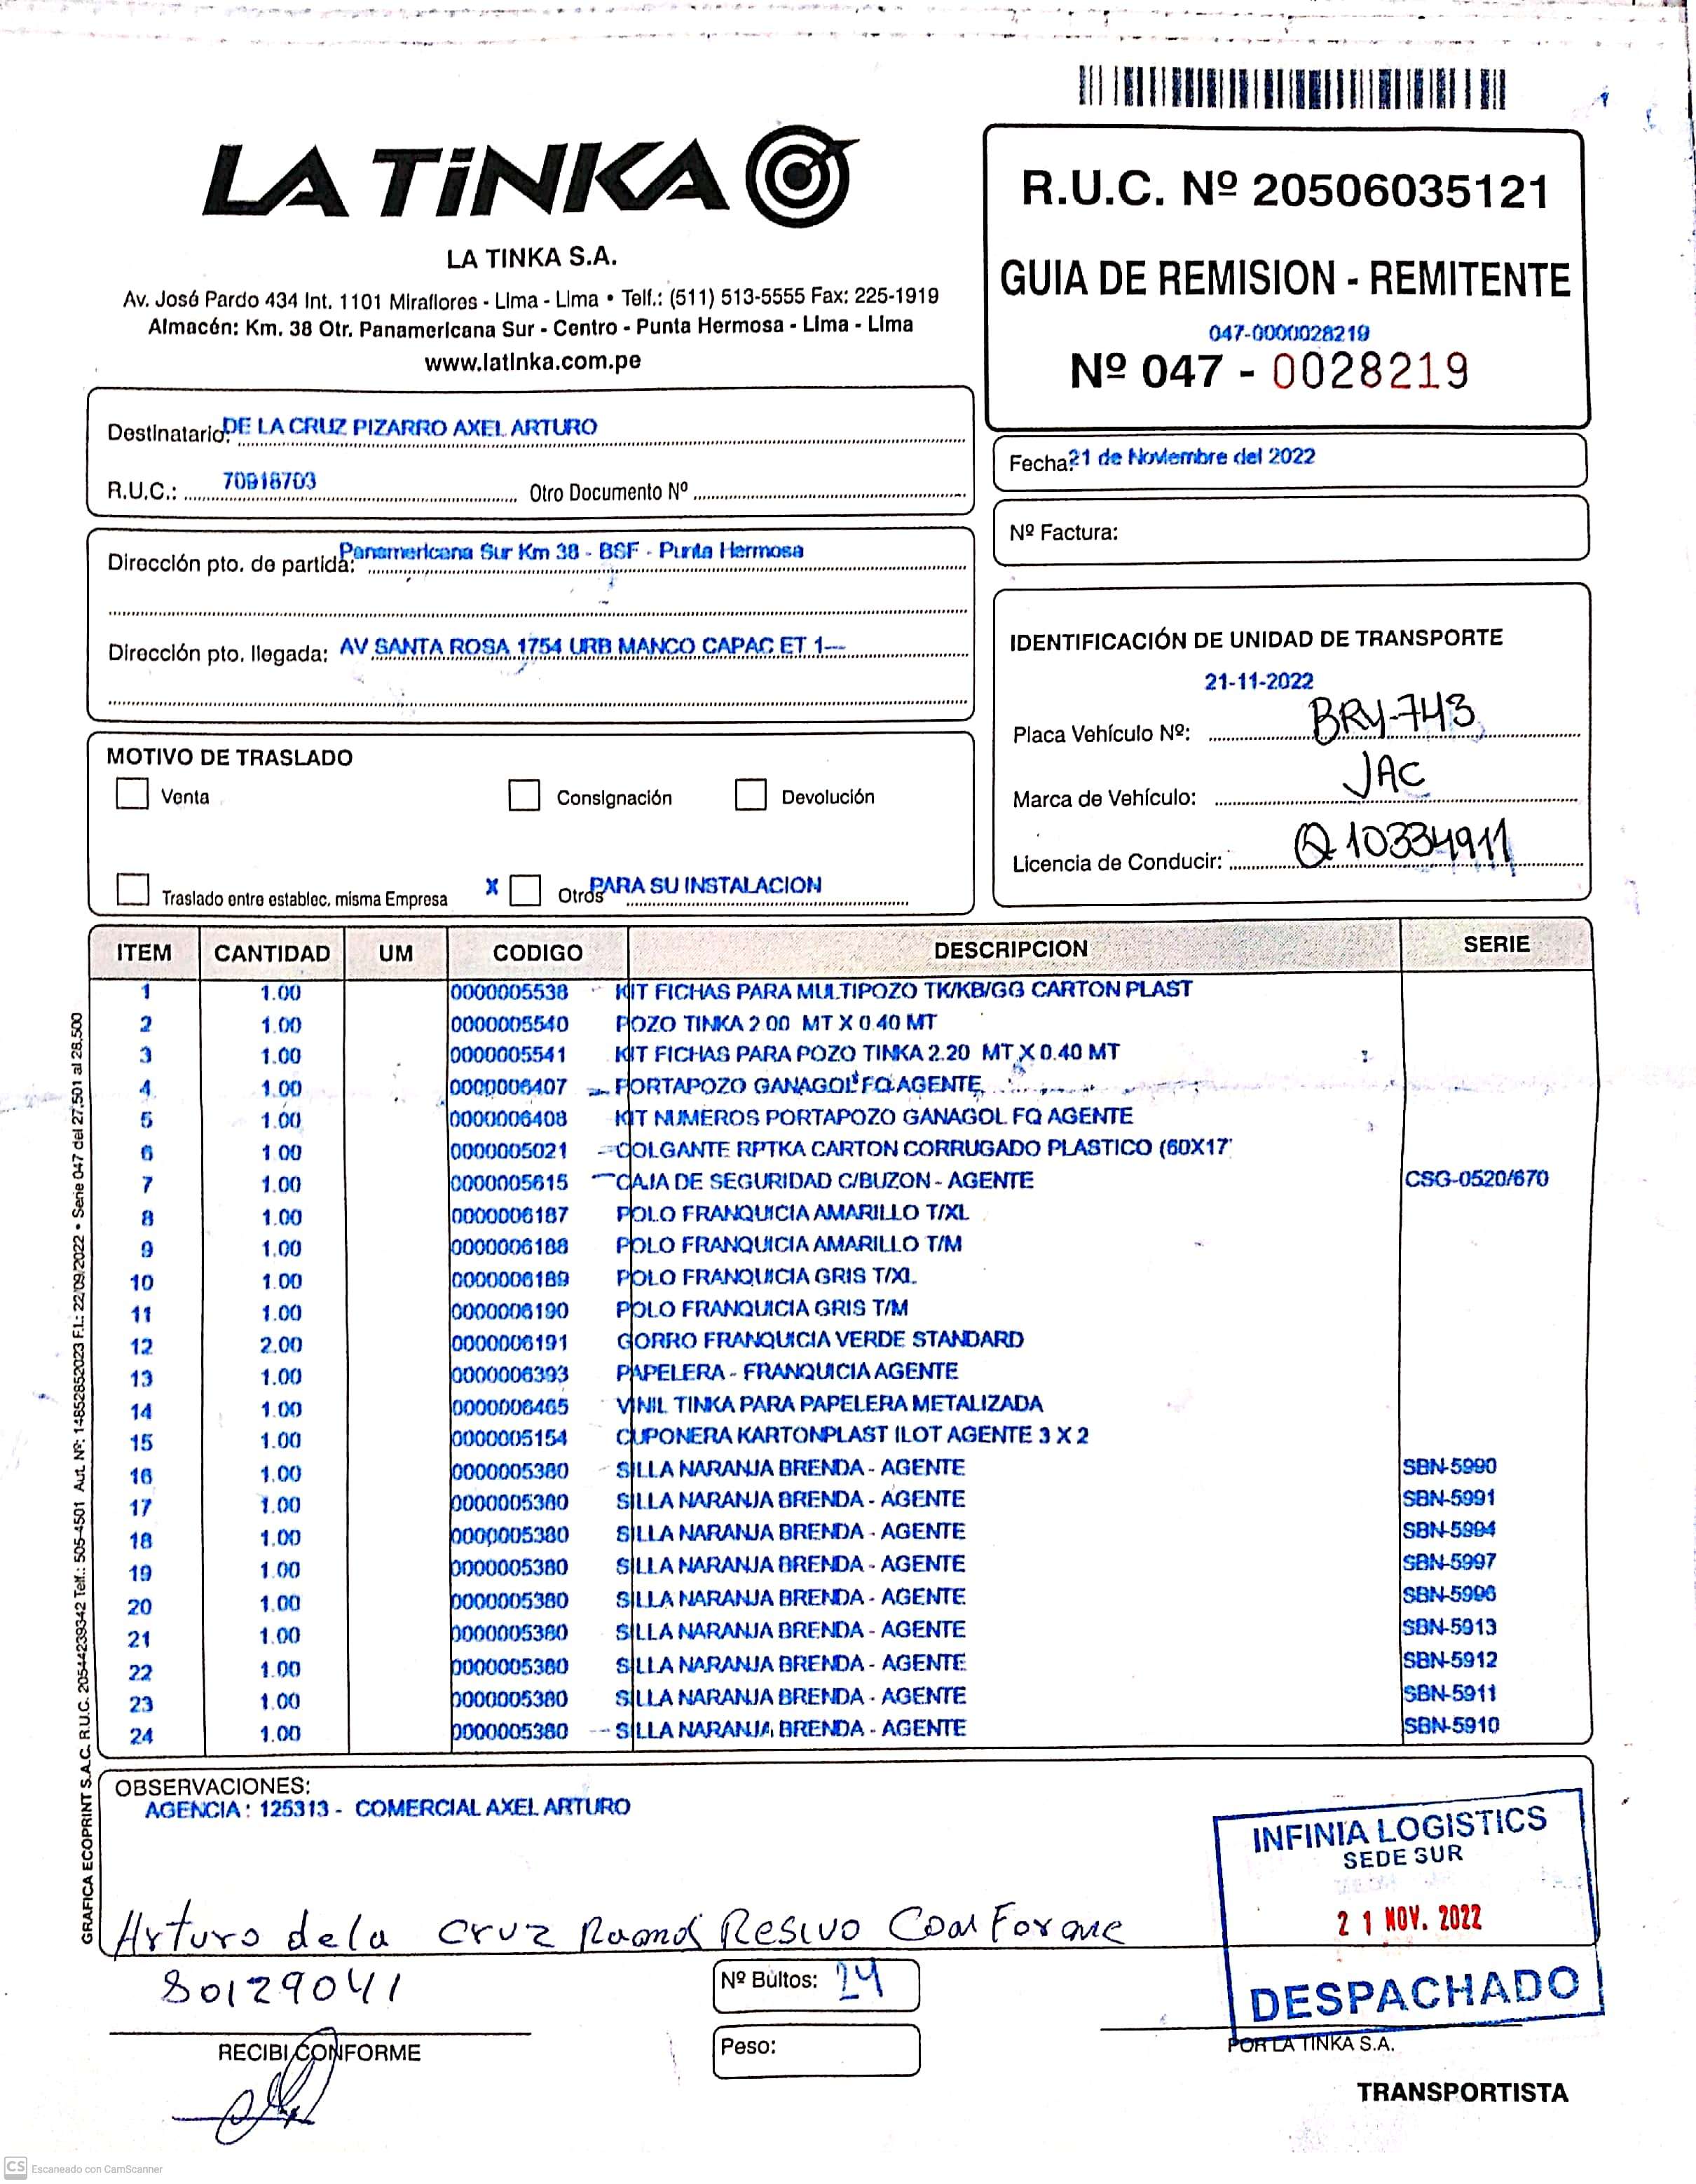 LA TiNKA
LA TINKA S.A.
Av. José Pardo 434 Int. 1101 Miraflores - Lima - Lima • Telf.: (511) 513-5555 Fax: 225-1919
Almacén: Km. 38 Otr. Panamericana Sur - Centro - Punta Hermosa - Lima - Lima
www.latinka.com.pe
R.U.C. Nº 20506035121
GUIA DE REMISION - REMITENTE
047-0000028219
Nº 047 - 0028219
Destinatario: DE LA CRUZ PIZARRO AXEL ARTURO
R.U.C.: 70918703 Otro Documento Nº
Fecha: 21 de Noviembre del 2022
Nº Factura:
Dirección pto. de partida: Panamericana Sur Km 38 - BSF - Punta Hermosa
Dirección pto. llegada: AV SANTA ROSA 1754 URB MANCO CAPAC ET 1---
IDENTIFICACIÓN DE UNIDAD DE TRANSPORTE
21-11-2022
Placa Vehículo Nº: BRY-743
Marca de Vehículo: JAC
Licencia de Conducir: Q10334911
MOTIVO DE TRASLADO
Venta Consignación Devolución
Traslado entre establec. misma Empresa X Otros PARA SU INSTALACION
ITEM CANTIDAD UM CODIGO DESCRIPCION SERIE
1 1.00 0000005538 KIT FICHAS PARA MULTIPOZO TK/KB/GG CARTON PLAST
2 1.00 0000005540 POZO TINKA 2 00 MT X 0 40 MT
3 1.00 0000005541 KIT FICHAS PARA POZO TINKA 2.20 MT X 0.40 MT
4 1.00 0000006407 PORTAPOZO GANAGOL FQ AGENTE
5 1.00 0000006408 KIT NUMEROS PORTAPOZO GANAGOL FQ AGENTE
6 1 00 0000005021 COLGANTE RPTKA CARTON CORRUGADO PLASTICO (60X17'
7 1.00 0000005615 CAJA DE SEGURIDAD C/BUZON - AGENTE CSG-0520/670
8 1.00 0000006187 POLO FRANQUICIA AMARILLO T/XL
9 1.00 0000006188 POLO FRANQUICIA AMARILLO T/M
10 1.00 0000006189 POLO FRANQUICIA GRIS T/XL
11 1.00 0000006190 POLO FRANQUICIA GRIS T/M
12 2.00 0000006191 GORRO FRANQUICIA VERDE STANDARD
13 1.00 0000006393 PAPELERA - FRANQUICIA AGENTE
14 1.00 0000006465 VINIL TINKA PARA PAPELERA METALIZADA
15 1.00 0000005154 CUPONERA KARTONPLAST ILOT AGENTE 3 X 2
16 1.00 0000005380 SILLA NARANJA BRENDA - AGENTE SBN-5990
17 1.00 0000005380 SILLA NARANJA BRENDA - AGENTE SBN-5991
18 1.00 0000005380 SILLA NARANJA BRENDA - AGENTE SBN-5994
19 1.00 0000005380 SILLA NARANJA BRENDA - AGENTE SBN-5997
20 1.00 0000005380 SILLA NARANJA BRENDA - AGENTE SBN-5996
21 1.00 0000005380 SILLA NARANJA BRENDA - AGENTE SBN-5913
22 1.00 0000005380 SILLA NARANJA BRENDA - AGENTE SBN-5912
23 1.00 0000005380 SILLA NARANJA BRENDA - AGENTE SBN-5911
24 1.00 0000005380 SILLA NARANJA BRENDA - AGENTE SBN-5910
GRAFICA ECOPRINT S.A.C. R.U.C. 20544239342 Telf.: 505-4501 Aut. Nº: 14852852023 F.I.: 22/09/2022 • Serie 047 del 27,501 al 28,500
OBSERVACIONES:
AGENCIA : 125313 - COMERCIAL AXEL ARTURO
INFINIA LOGISTICS
SEDE SUR
21 NOV. 2022
DESPACHADO
Arturo de la Cruz Resivo
80129041
Nº Bultos: 24
Peso:
RECIBI CONFORME
POR LA TINKA S.A.
TRANSPORTISTA
CS Escaneado con CamScanner